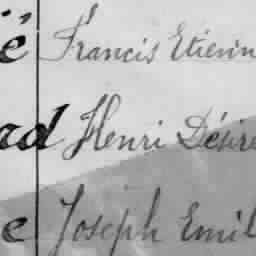 é Francis Etienn
ad Henri Désiré
e Joseph Emil